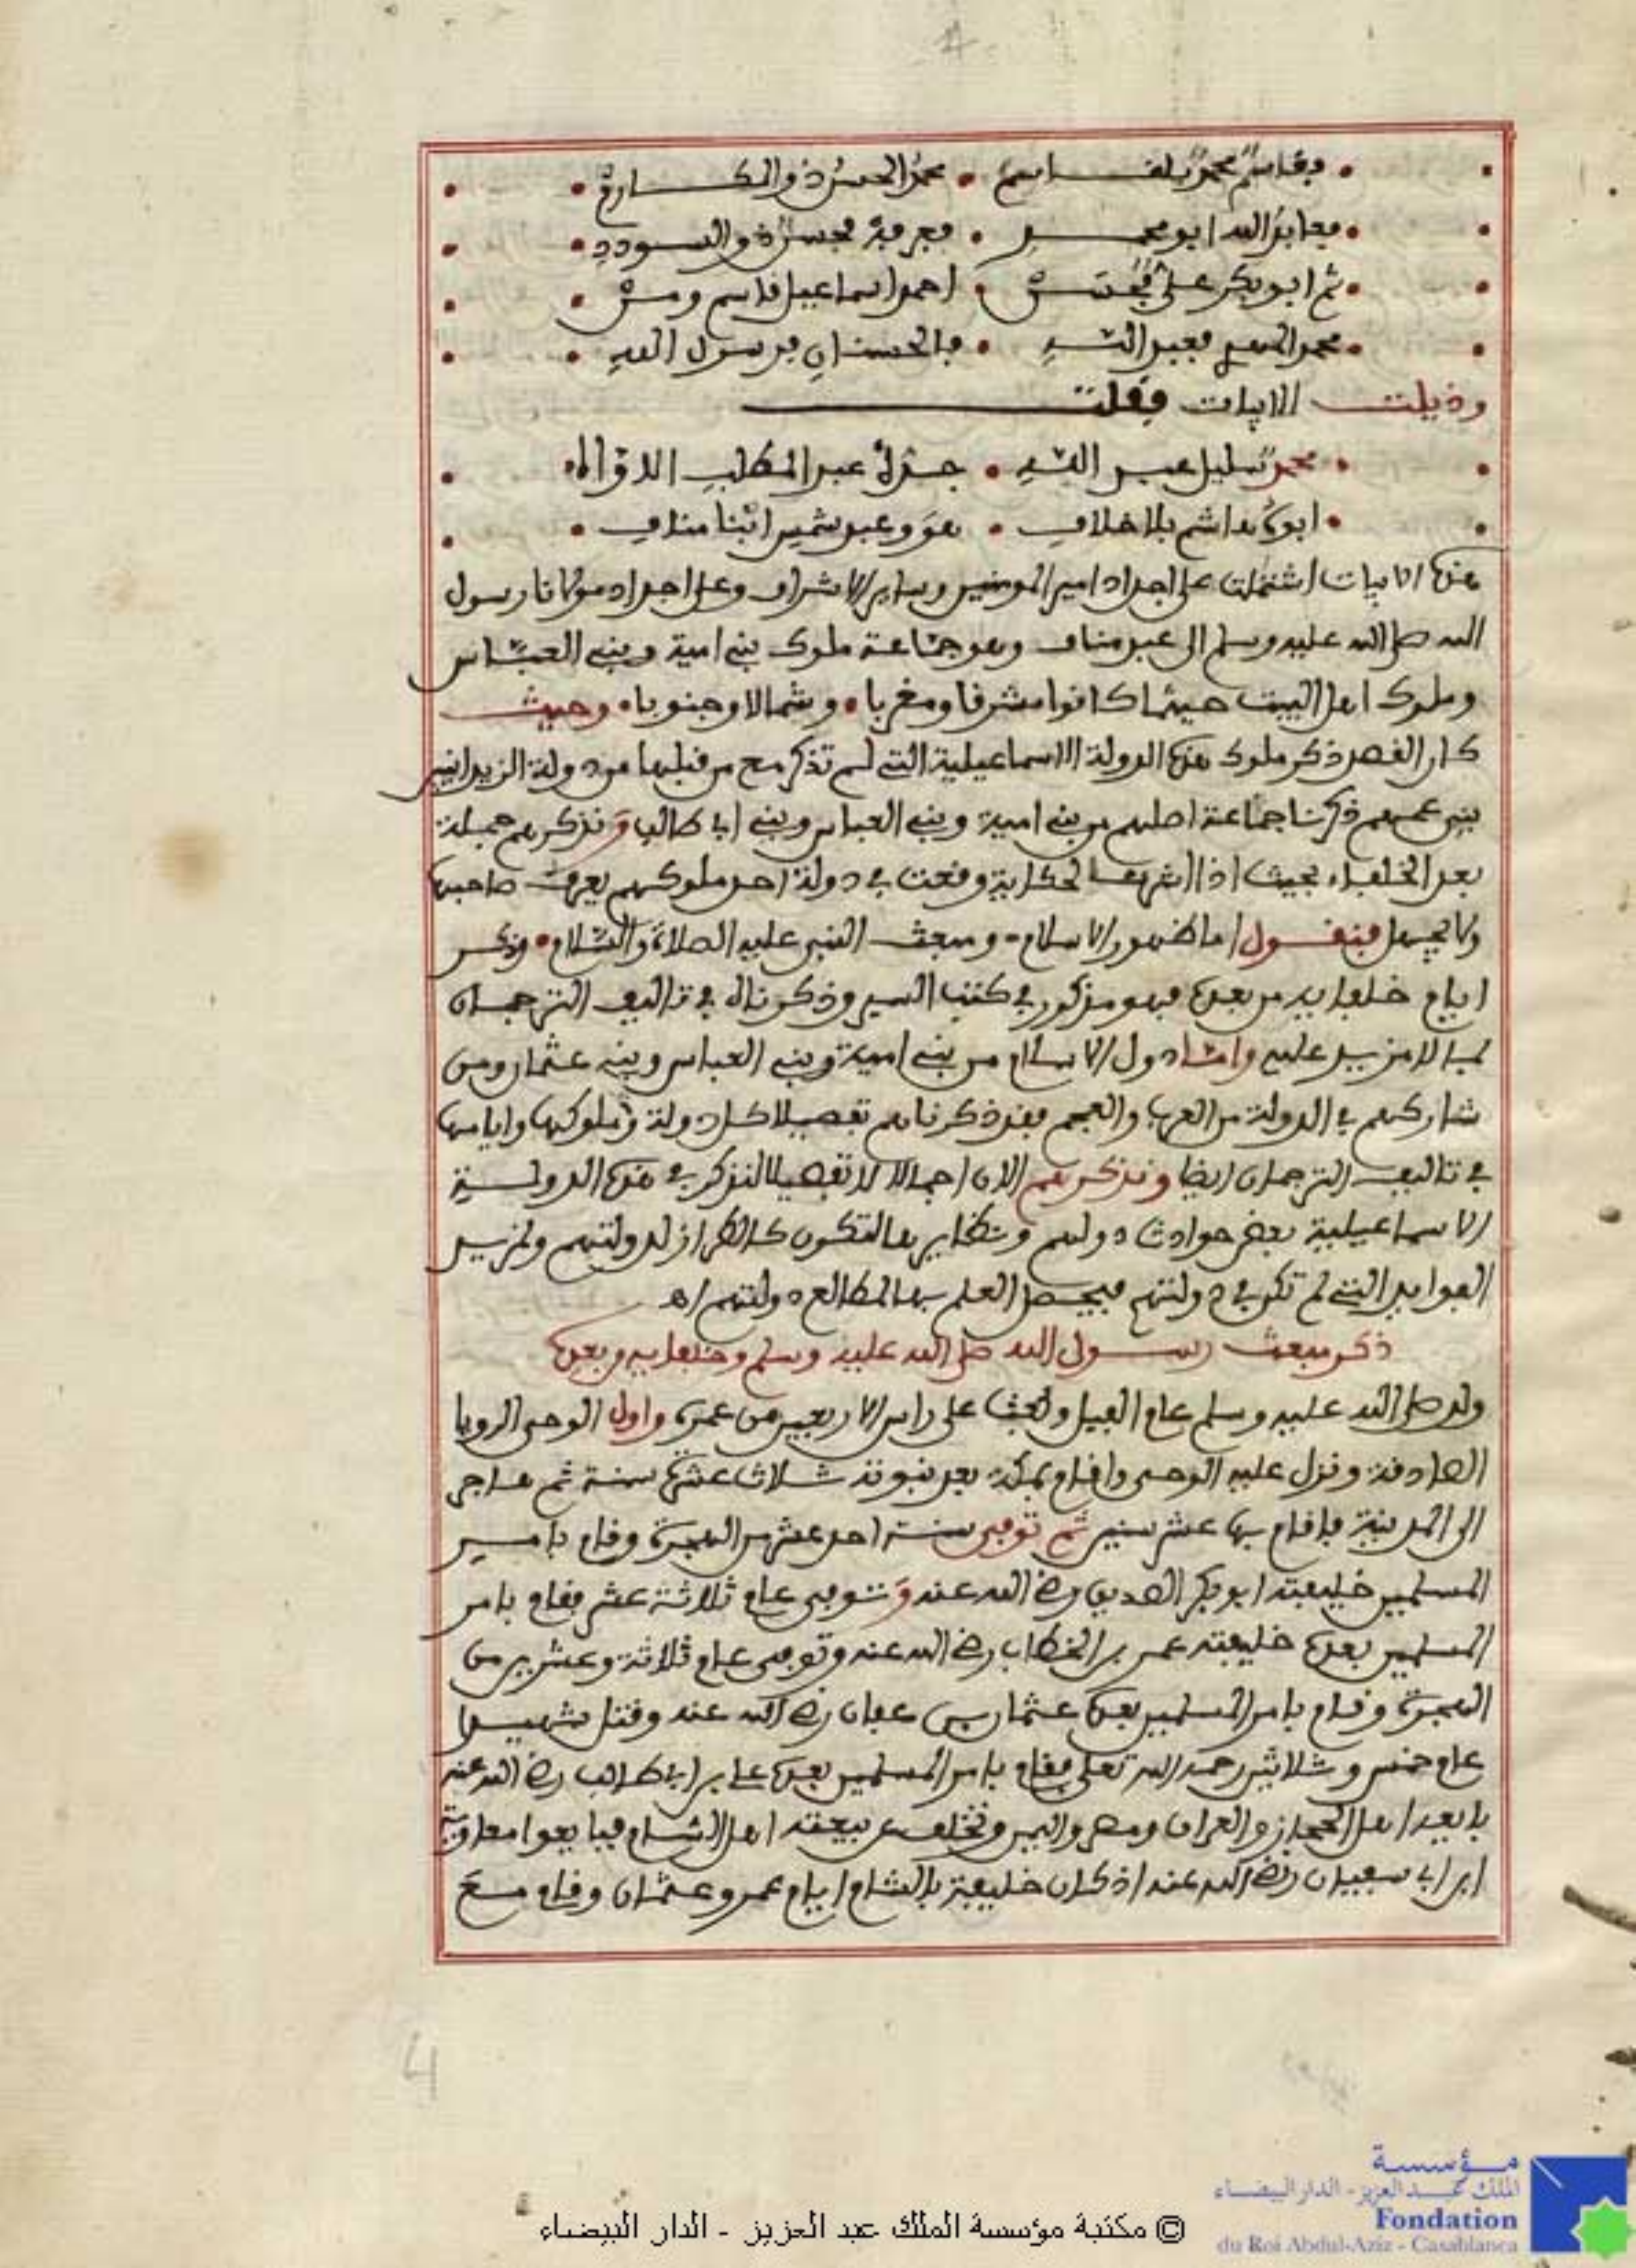 4
فقاسم محمد بلقاسم • محمد الحسن ذو المكارم
فعابد الله ابو محمد • فعرفة محسن ذو السودد
ثم ابو بكر علي فحسن • احمد اسماعيل قاسم ومن
محمد فعبد الله • فالحسنان من رسول الله
وذيلت الابيات فقلت
محمد سليل عبد الله • عبد المطلب الاواه
ابوه هاشم بلا خلاف • هو وعبد شمس ابنا مناف
هذه الابيات اشتملت على اجداد امير المومنين وساير الاشراف وعلى اجداد مولانا رسول
الله صلى الله عليه وسلم الى عبد مناف وهو جماعة ملوك بني امية وبني العباس
وملوك اهل البيت حيثما كانوا مشرقا ومغربا • وشمالا وجنوبا • وحيث
كان القصد ذكر ملوك هذه الدولة الاسماعيلية التي لم تذكر مع من قبلها من دولة الزيدانيين
بني عمهم ذكرنا جماعة اصلهم من بني امية وبني العباس وبني ابي طالب ونذكرهم جملة
بعد الخلفاء بحيث اذا الحكاية وقعت في دولة احد ملوكهم يعرف صاحبها
ولا يجهل فنقول اما ظهور الاسلام • ومبعث النبي عليه الصلاة والسلام • وذكر
ايام خلفايه من بعده فهو مذكور في كتب السير وذكرناه في تاليف الترجمان
بما لا مزيد عليه واما دول الاسلام من بني امية وبني العباس وبني عثمان ومن
شاركهم في الدولة من العرب والعجم فقد ذكرناهم تفصيلا كل دولة وملوكها وايامها
في تاليف الترجمان ايضا ونذكرهم الان اجمالا لا تفصيلا لنذكر في هذه الدولة
الاسماعيلية بعض حوادث دولهم ونظايرها لتكون كالطراز لدولتهم ولمزيد
الفوايد التي لم تكن في دولتهم فيحصل العلم بها لمطالع دولتهم اه
ذكر مبعث رسول الله صلى الله عليه وسلم وخلفايه وبعده
ولد صلى الله عليه وسلم عام الفيل وبعث على راس الاربعين من عمره واول الوحي الرويا
الصادقة ونزل عليه الوحي واقام بمكة بعد نبوته ثلاث عشرة سنة ثم هاجر
الى المدينة فاقام بها عشر سنين ثم توفي سنة احد عشر من الهجرة وقام بامر
المسلمين خليفته ابو بكر الصديق رضي الله عنه وتوفي عام ثلاثة عشر فقام بامر
المسلمين بعده خليفته عمر بن الخطاب رضي الله عنه وتوفي عام ثلاثة وعشرين من
الهجرة وقام بامر المسلمين بعده عثمان بن عفان رضي الله عنه وقتل شهيدا
عام خمس وثلاثين رحمه الله تعلى فقام بامر المسلمين بعده علي بن ابي طالب رضي الله عنه
بايعه اهل الحجاز والعراق ومصر واليمن وتخلف عن بيعته اهل الشام فبايعوا معاوية
ابن ابي سفيان رضي الله عنه اذ كان خليفة بالشام ايام عمر وعثمان وقام مع
4
مؤسسة
الملك عبد العزيز - الدار البيضاء
Fondation
du Roi Abdul-Aziz - Casablanca
© مكتبة مؤسسة الملك عبد العزيز - الدار البيضاء